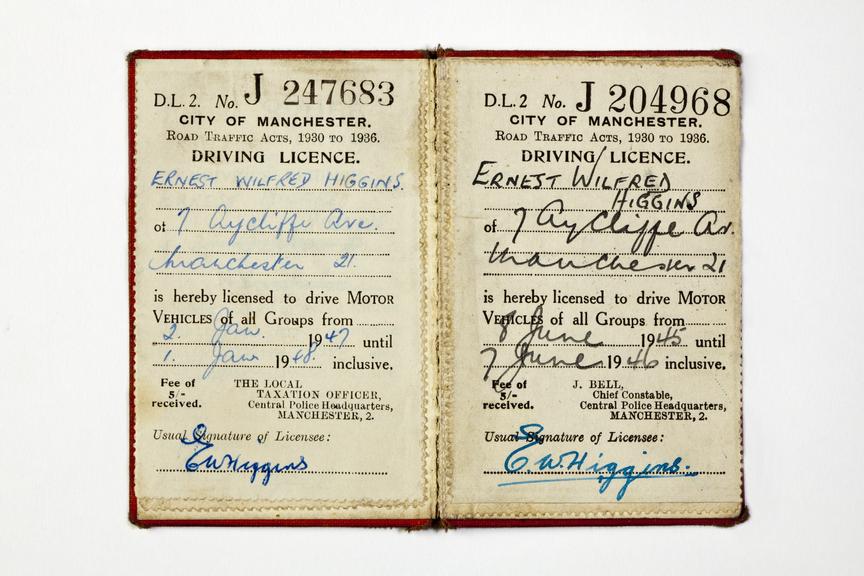 D.L. 2. No. J 247683
CITY OF MANCHESTER.
ROAD TRAFFIC ACTS, 1930 TO 1936.
DRIVING LICENCE.
ERNEST WILFRED HIGGINS.
of 7 Aycliffe Ave.
Manchester 21.
is hereby licensed to drive MOTOR
VEHICLES of all Groups from
2. Jan. 1947 until
1. Jan 1948 inclusive.
Fee of
5/-
received.
THE LOCAL
TAXATION OFFICER,
Central Police Headquarters,
MANCHESTER, 2.
Usual Signature of Licensee:
EW Higgins
D.L. 2 No. J 204968
CITY OF MANCHESTER.
ROAD TRAFFIC ACTS, 1930 TO 1936.
DRIVING LICENCE.
ERNEST WILFRED
HIGGINS
of 7 Aycliffe Av.
Manchester 21
is hereby licensed to drive MOTOR
VEHICLES of all Groups from
8 June 1945 until
7 June 1946 inclusive.
Fee of
5/-
received.
J. BELL,
Chief Constable,
Central Police Headquarters,
MANCHESTER, 2.
Usual Signature of Licensee:
E.W. Higgins.